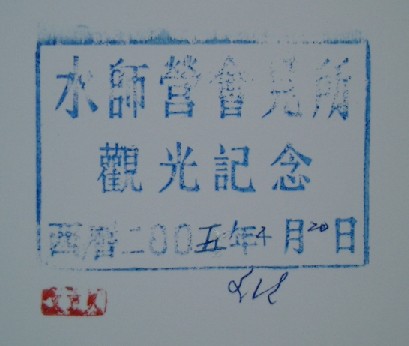 水師營會見所
觀光記念
西曆二00五年4月20日